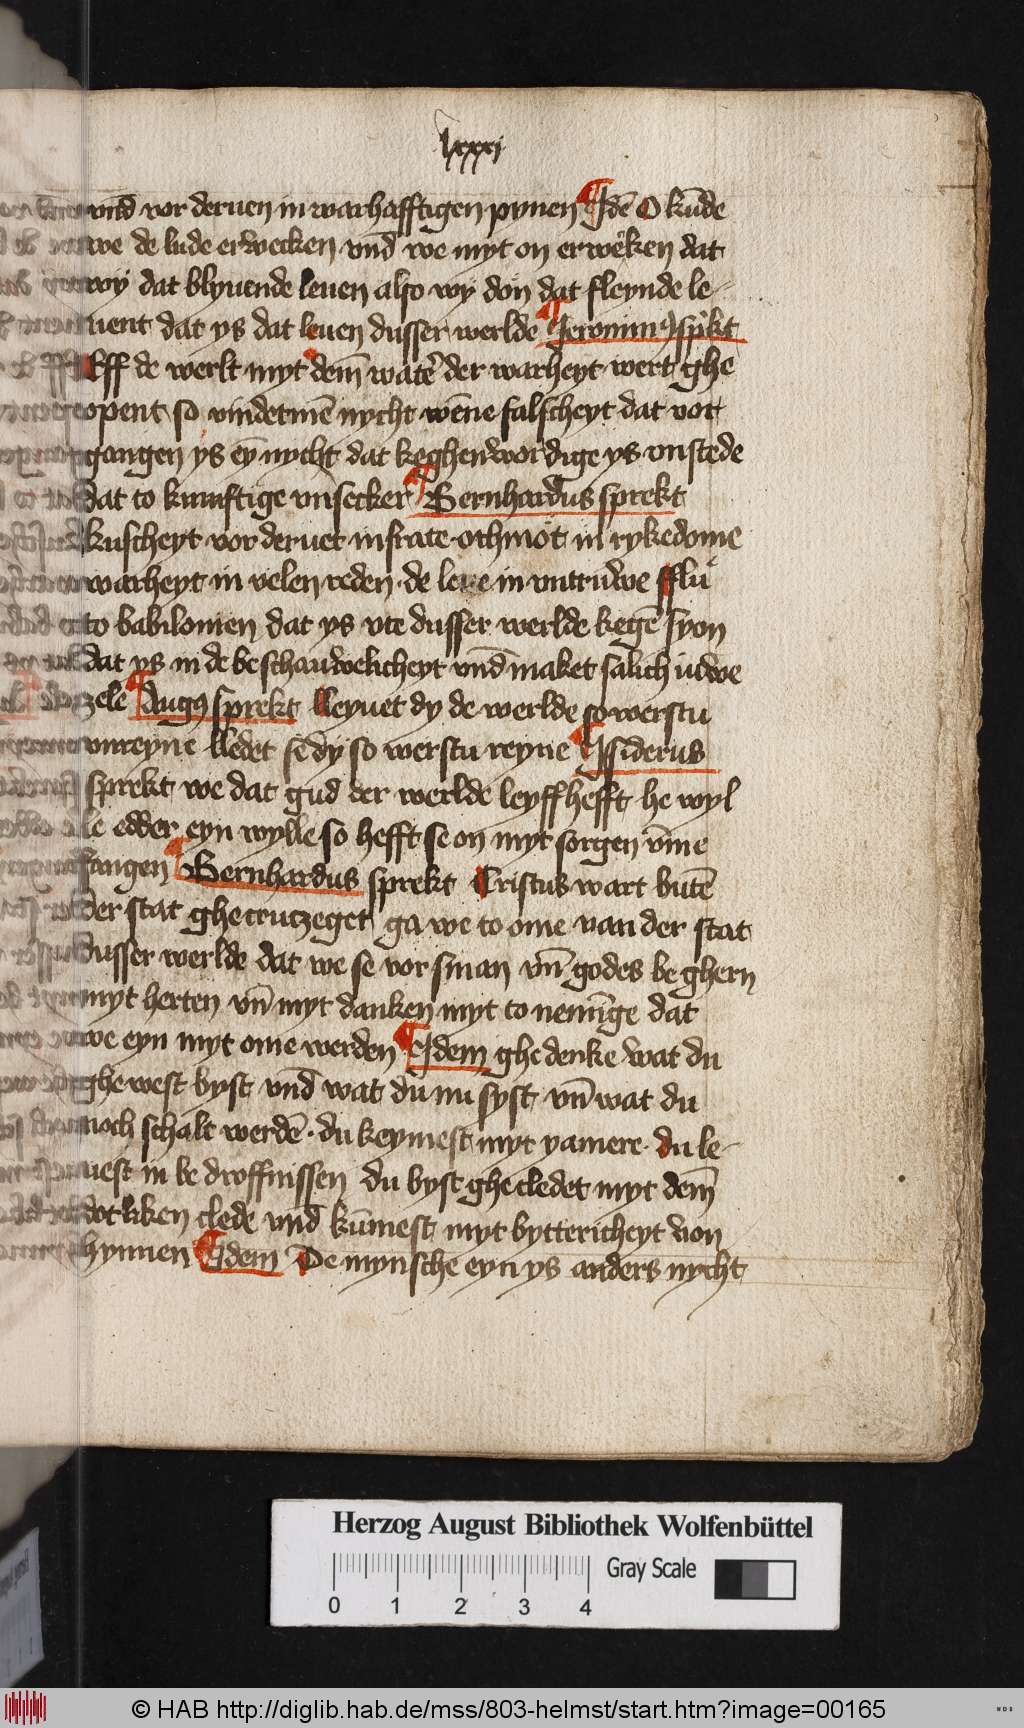 lxxxj
vnd vor deruen in warhafftigen pynen Idē O kūde
we de lude erwecken vnd we myt on erweken dat
wy dat blyuende leuen also wy don dat fleynde le-
uent dat ys dat leuen dusser werlde Jeronimꝰ sprekt
Eff de werlt myt dem̄ wat' der warheyt wert ghe
opent so vindetmē nycht wēne falscheyt dat vor
gangen ys ey nycht dat keghenwordige ys vnstede
dat to kumftige vnsecker Bernhardus sprekt
kuscheyt vor deruet in frate othmot in rykedome
warheyt in velen reden de leue in vntruwe fflu
to babilonien dat ys vte dusser werlde kegē syon
dat ys in de beschauwelicheyt vnd maket salich iuwe
zele Augꝰ sprekt lleyuet dy de werlde so werstu
vnreyne lledet se dy so werstu reyne Isiderus
sprekt we dat gud der werlde leyff hefft he wyl
le edder eyn wylle so hefft se on myt sorgen vm̄e
fangen Bernhardus sprekt Cristus wart butē
der stat ghecrutzeget ga we to ome van der stat
dusser werlde dat we se vor sman vn̄ godes beghern
myt herten vn̄ myt danken myt to nemīge dat
we eyn myt ome werden Idem ghedenke wat du
ghewest byst vnd wat du nu syst vn̄ wat du
noch schalt werdē · du keymest myt yamere · du le-
uest in bedroffnissen du byst ghecledet myt dem̄
dotliken clede vnd kūmest myt bittericheyt von
hynnen Idem De mynsche eyn ys anders nycht
Herzog August Bibliothek Wolfenbüttel
Gray Scale
0 1 2 3 4
© HAB http://diglib.hab.de/mss/803-helmst/start.htm?image=00165